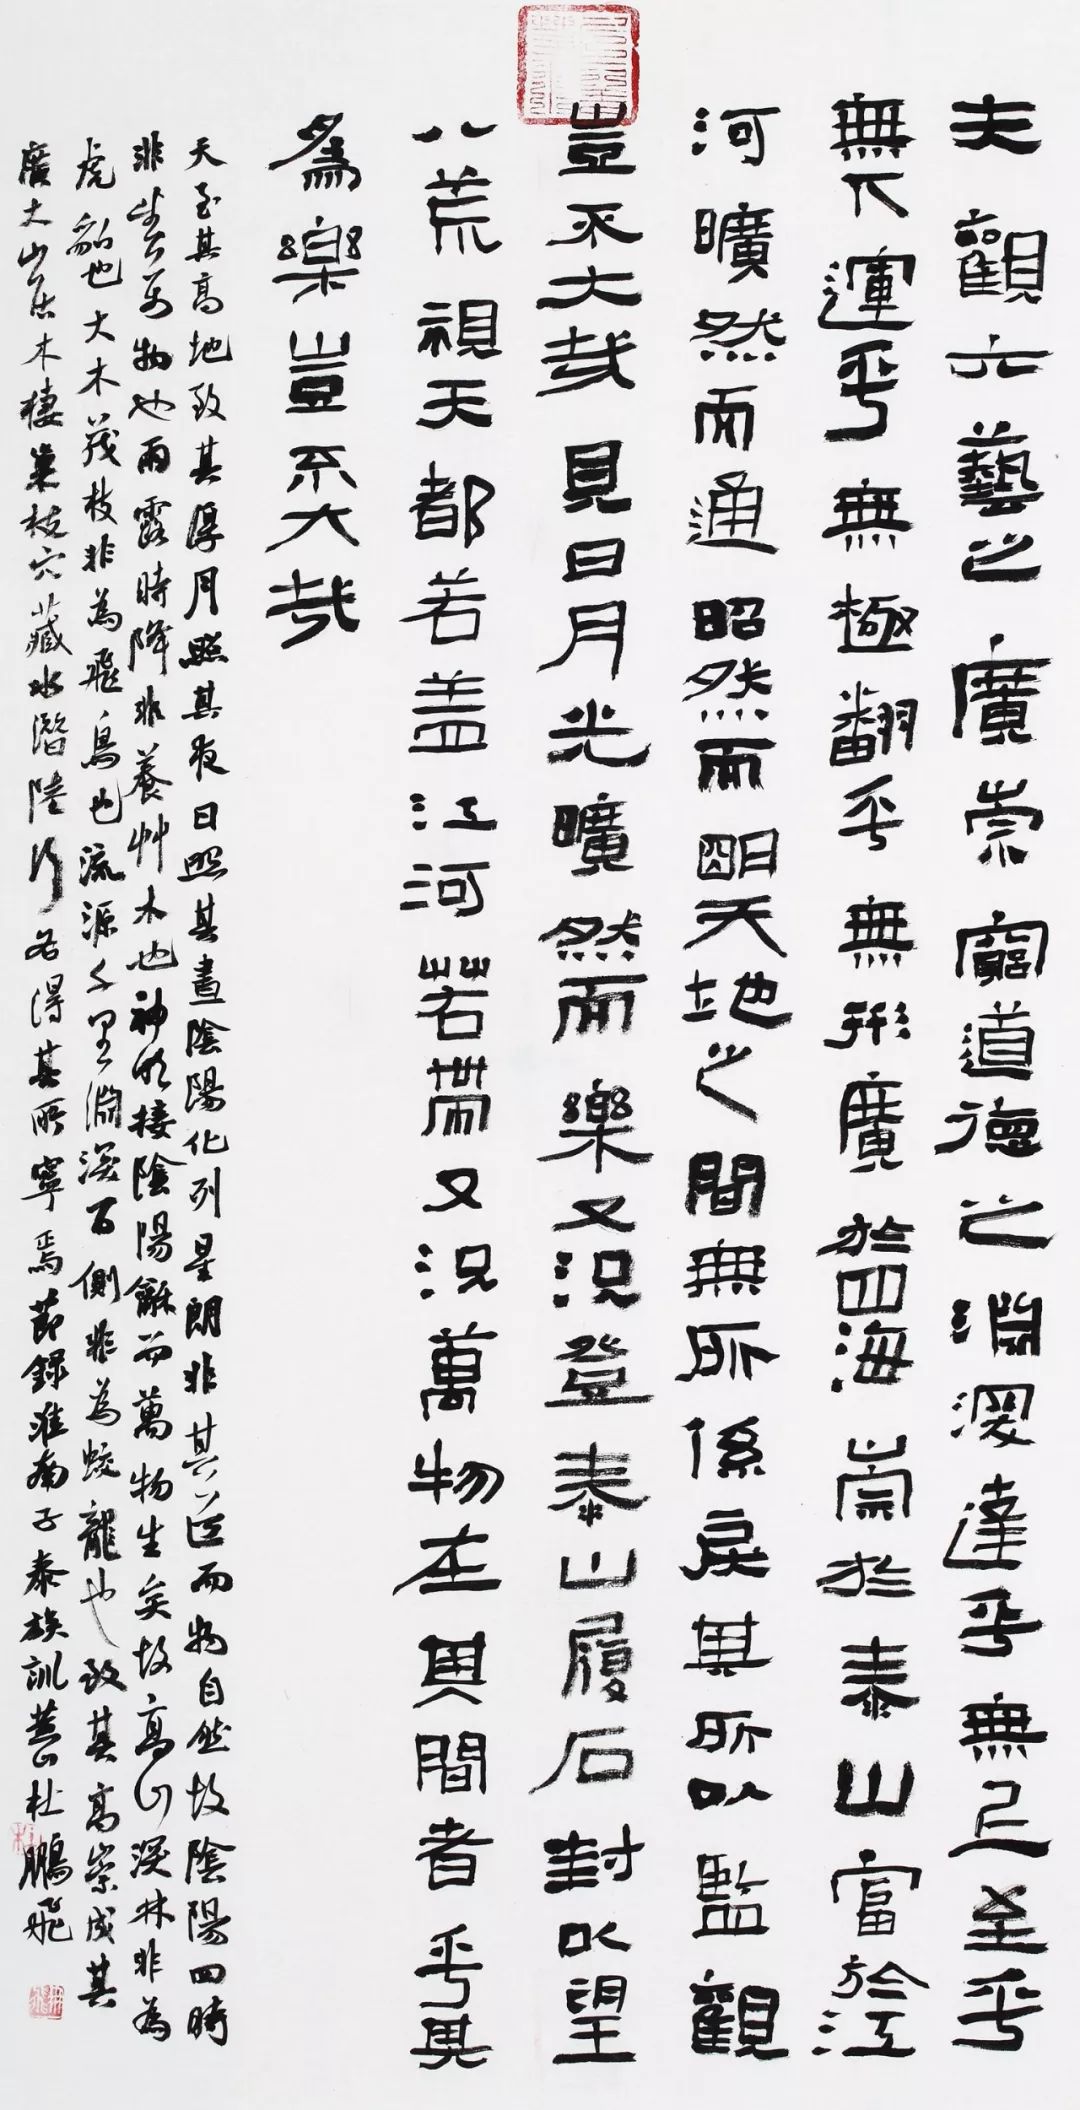 夫觀六藝之廣崇窮道德之淵深達乎無上至乎
無下運乎無極翻乎無形廣於四海崇於泰山富於江
河曠然而通昭然而明天地之間無所係戾其所以監觀
豈不大哉見日月光曠然而樂又況登泰山履石封以望
八荒視天都若盖江河若帶又況萬物在其間者乎其
為樂豈不大哉
天至其高地致其厚月照其夜日照其晝陰陽化列星朗非其道而物自然故陰陽四時
非生万物也雨露時降非養艸木也神明接陰陽龢而萬物生矣故高山深林非為
虎豹也大木茂枝非為飛鳥也流源千里淵深百側非為蛟龍也致其高崇成其
廣大山居木棲巢枝穴藏水潛陸行各得其所寧焉節錄淮南子泰族訓杜鵬飛